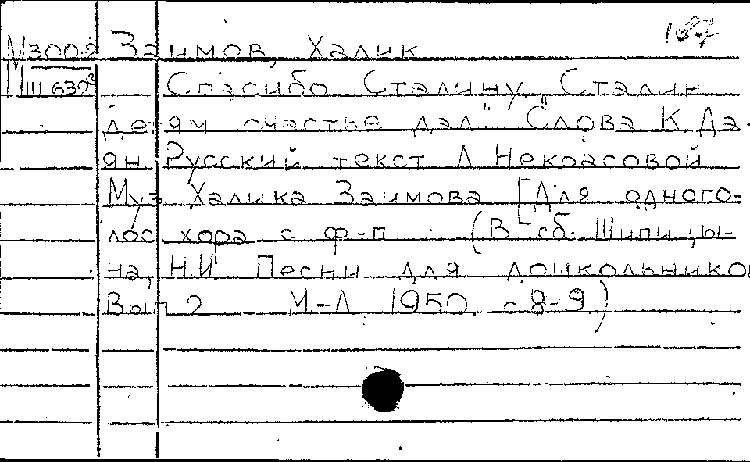 187
М300-2 Заимов, Халик
III 632 Спасибо Сталину, Сталин
детям счастье дал". Слова К. Да-
ян. Русский текст Л. Некрасовой
Муз. Халика Заимова [Для одного-
лос. хора с ф-п. (В сб. Шипицы-
на, Н.И. Песни для дошкольников
Вып. 2 М-Л 1950. с 8-9)